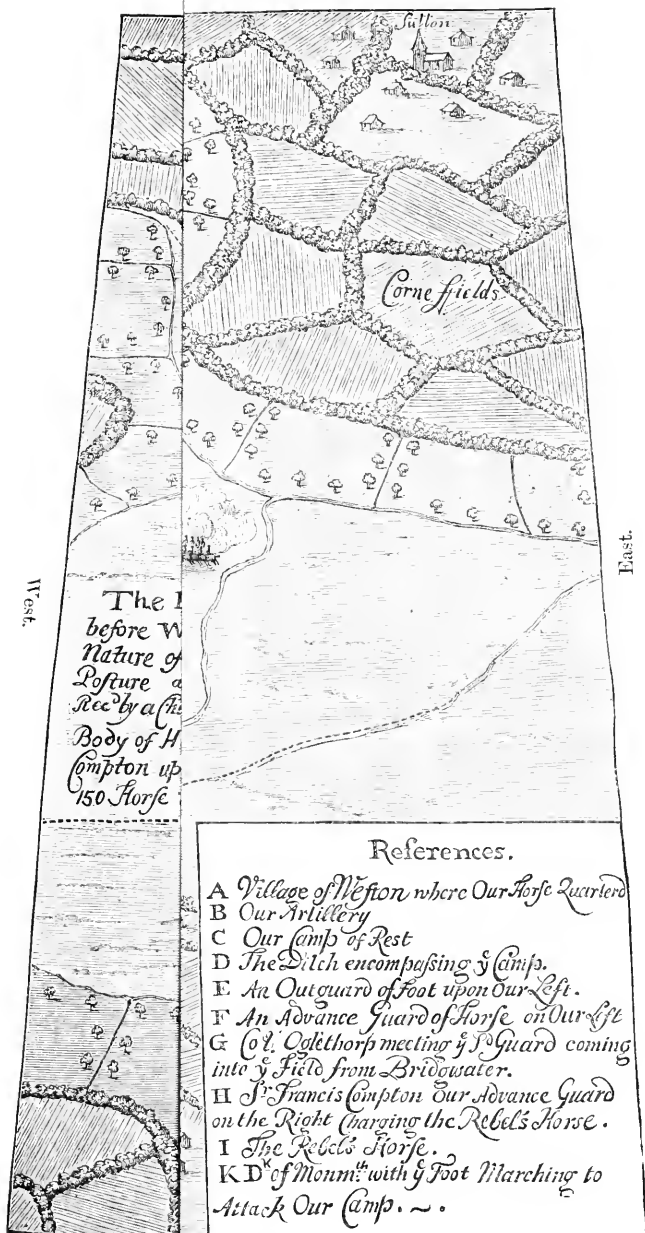 Sutton
Corne ffields
West.
East.
The
before W
Nature of
Posture a
Rec'd by a Ch
Body of H
Compton up
150 Horse
References.
A Village of Weston where Our Horse Quarterd
B Our Artillery
C Our Camp of Rest
D The Ditch encompassing ye Camp.
E An Outguard of Foot upon Our Left.
F An Advance Guard of Horse on Our Left
G Col. Oglethorp meeting ye Sd Guard coming
into ye Field from Bridgwater.
H Sr Francis Compton Our Advance Guard
on the Right Charging the Rebel's Horse.
I The Rebel's Horse.
K Dk of Monmth with ye Foot Marching to
Attack Our Camp.